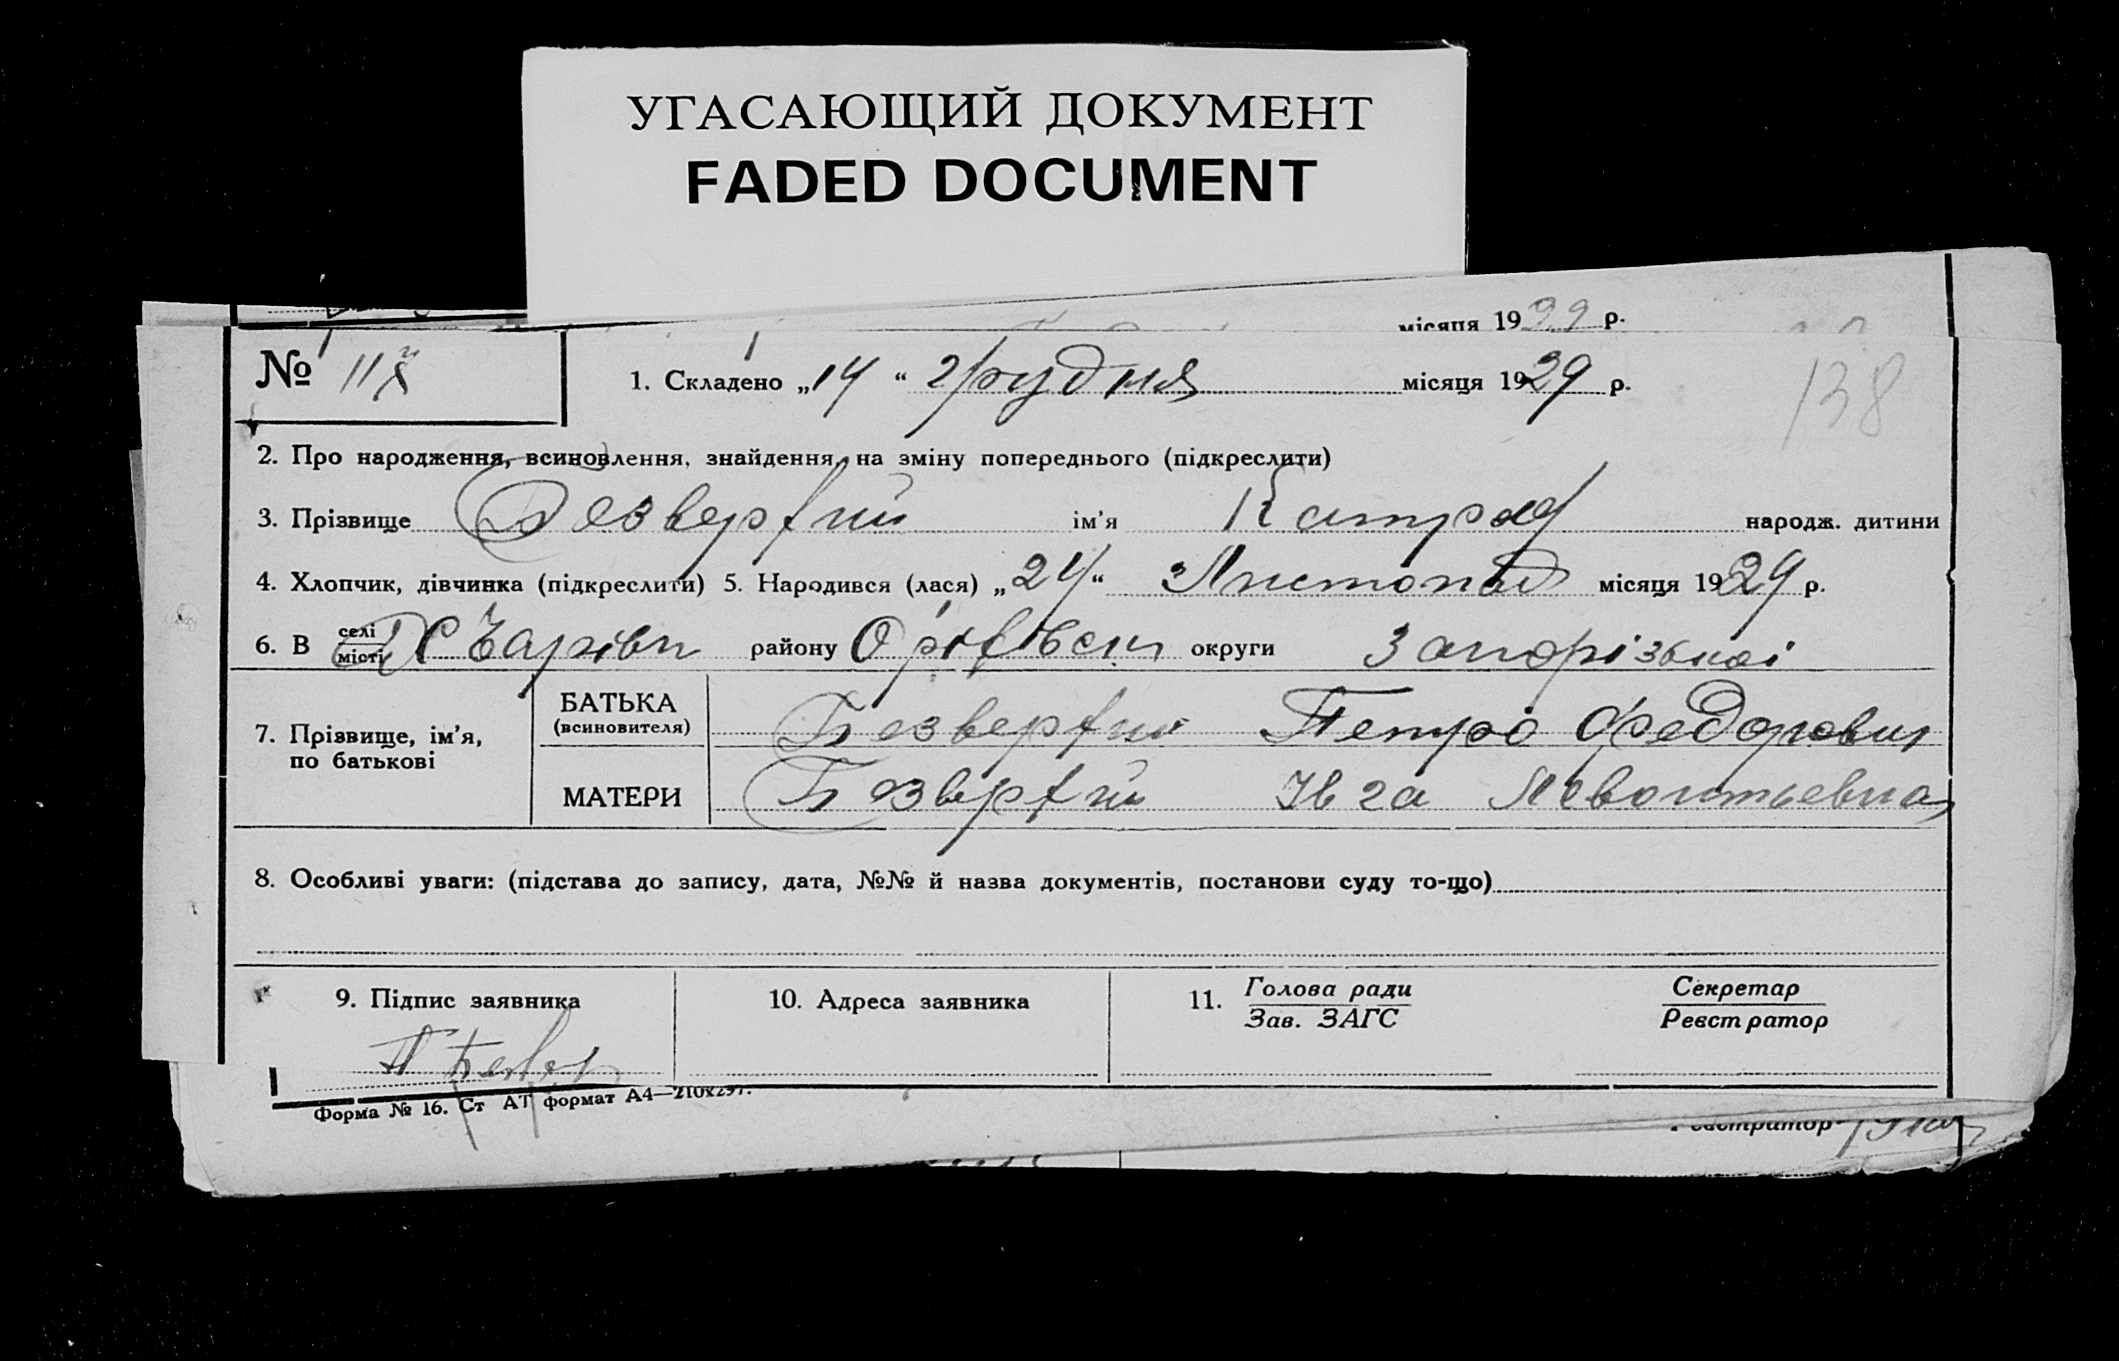 УГАСАЮЩИЙ ДОКУМЕНТ
FADED DOCUMENT
місяця 1929 р.
№ 118
1. Складено „14“ грудня місяця 1929 р.
138
2. Про народження, всиновлення, знайдення, на зміну попереднього (підкреслити)
3. Прізвище Безверхий ім'я народж. дитини
4. Хлопчик, дівчинка (підкреслити) 5. Народився (лася) „24“ Листопад місяця 1929 р.
6. В селі місті району округи Запорізької
7. Прізвище, ім'я, по батькові
БАТЬКА (всиновителя) Безверхий Петро Федорович
МАТЕРИ Безверхий Ївга
8. Особливі уваги: (підстава до запису, дата, №№ й назва документів, постанови суду то-що)
9. Підпис заявника
10. Адреса заявника
11. Голова ради Секретар
Зав. ЗАГС Реєстратор
Форма № 16. Ст АТ формат А4—210x297.
Реєстратор